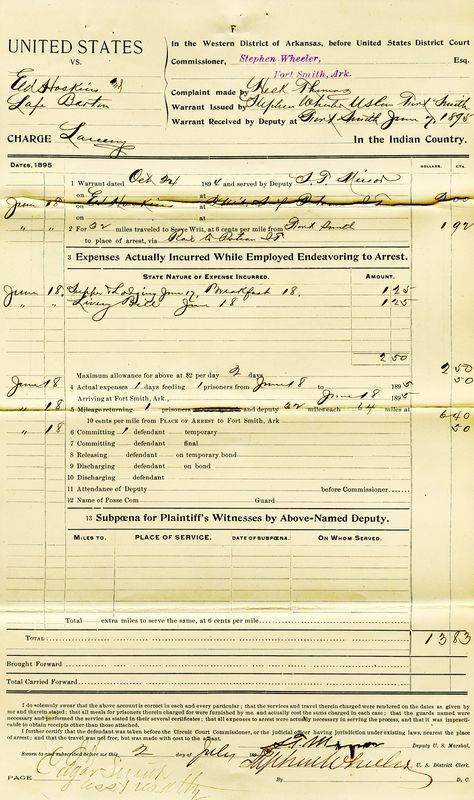 F
UNITED STATES
VS.
Ed Hoskins et al
Lafe Barton
CHARGE Larceny
In the Western District of Arkansas, before United States District Court
Commissioner, Stephen Wheeler, Esq.
Fort Smith, Ark.
Complaint made by Heck Thomas
Warrant Issued by Stephen Wheeler US Com Fort Smith
Warrant Received by Deputy at Fort Smith June 7, 1895
In the Indian Country.
DATES, 1895
DOLLARS. CTS.
1 Warrant dated Oct 24 1894 and served by Deputy
June 18 on Ed Hoskins at 2 00
on at
" " 2 For 32 miles traveled to Serve Writ, at 6 cents per mile from Fort Smith 1 92
to place of arrest, via
3 Expenses Actually Incurred While Employed Endeavoring to Arrest.
STATE NATURE OF EXPENSE INCURRED. AMOUNT.
June 18. Supper & Lodging June 17, Breakfast 18. 1 25
" " Livery Bill June 18 1 25
2 50
Maximum allowance for above at $2 per day 2 days 2 50
June 18 4 Actual expenses 1 days feeding 1 prisoners from June 18 to 1895 50
Arriving at Fort Smith, Ark., June 18 1895
" 18 5 Mileage returning 1 prisoners and deputy 32 miles each 64 miles at 6 40
10 cents per mile from PLACE OF ARREST to Fort Smith, Ark
" 18 6 Committing 1 defendant temporary 50
7 Committing defendant final
8 Releasing defendant on temporary bond
9 Discharging defendant on bond
10 Discharging defendant
11 Attendance of Deputy before Commissioner
12 Name of Posse Com Guard
13 Subpœna for Plaintiff's Witnesses by Above-Named Deputy.
MILES TO. PLACE OF SERVICE. DATE OF SUBPŒNA. ON WHOM SERVED.
Total extra miles to serve the same, at 6 cents per mile
TOTAL 13 83
Brought Forward
Total Carried Forward
I do solemnly swear that the above account is correct in each and every particular; that the services and travel therein charged were rendered on the dates as given by
me and therein stated; that all meals for prisoners therein charged for were furnished by me, and actually cost the sums charged in each case; that the guards named were
necessary and performed the service as stated in their several certificates; that all expenses to arrest were actually necessary in serving the process, and that it was impracti-
cable to obtain receipts other than those attached.
I further certify that the defendant was taken before the Circuit Court Commissioner, or the judicial officer having jurisdiction under existing laws, nearest the place
of arrest; and that the travel was not, but was made with cost to the
Deputy U. S. Marshal.
Sworn to and subscribed before me this 2 day of July 189
Stephen Wheeler U. S. District Clerk.
Edgar Smith
Asst US Atty
PAGE By D. C.